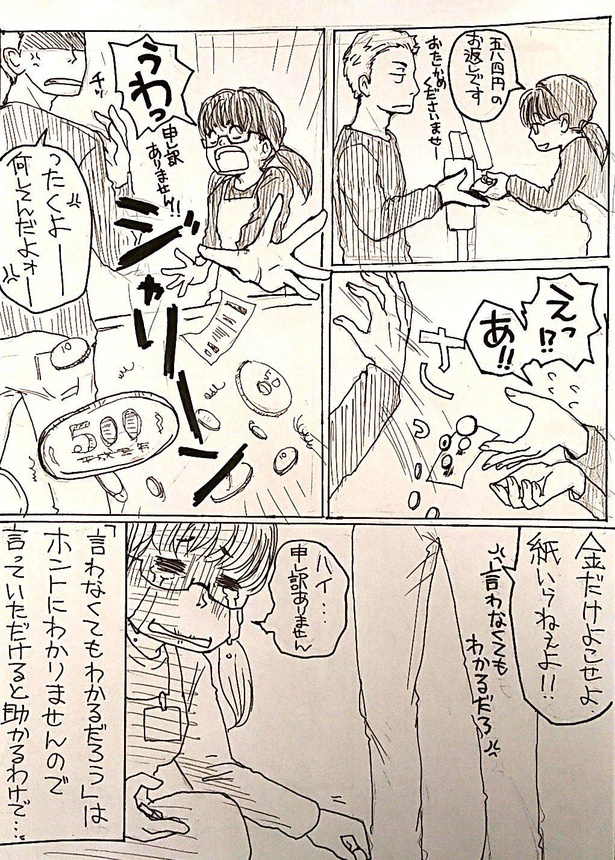 五八四円の
お返しです
おたしかめ
くださいませー
えっ
!?
あ!!
サッ
うわっ
申し訳
ありません!!
チッ
ったくよーーー
何してんだよォー
ジャリーン
500
50
10
金だけよこせよ
紙いらねぇよ!!
言わなくても
わかるだろ
ハイ…
申し訳ありません
「言わなくてもわかるだろう」は
ホントにわかりませんので
言っていただけると助かるわけで…。